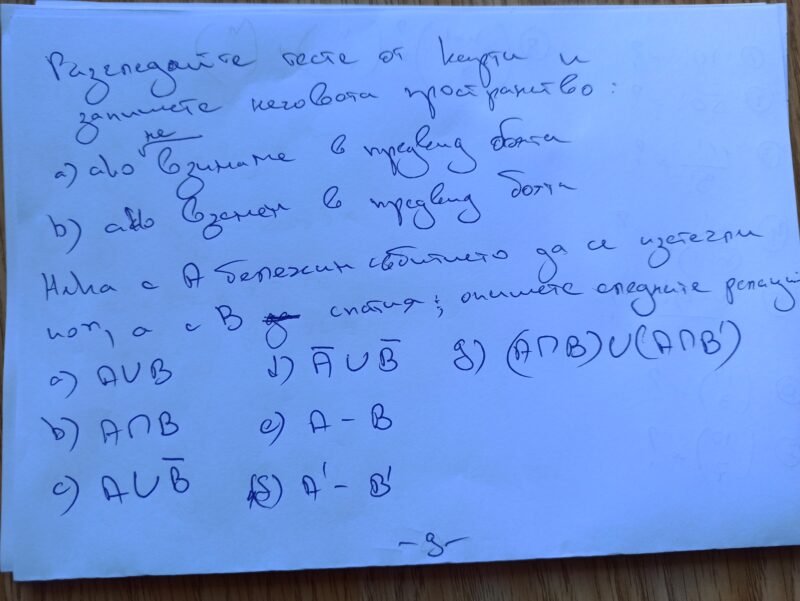 Разгледайте тесте от карти и
запишете неговота пространство:
не
а) ако взимаме в предвид боята
b) ако вземем в предвид боята
Нека с A бележим събитието да се изтегли
поп, а с B спатия; опишете следните релации
a) A∪B d) A̅ ∪ B̅ g) (A∩B)∪(A∩B')
b) A∩B e) A - B
c) A∪B̅ f) A' - B'
-g-